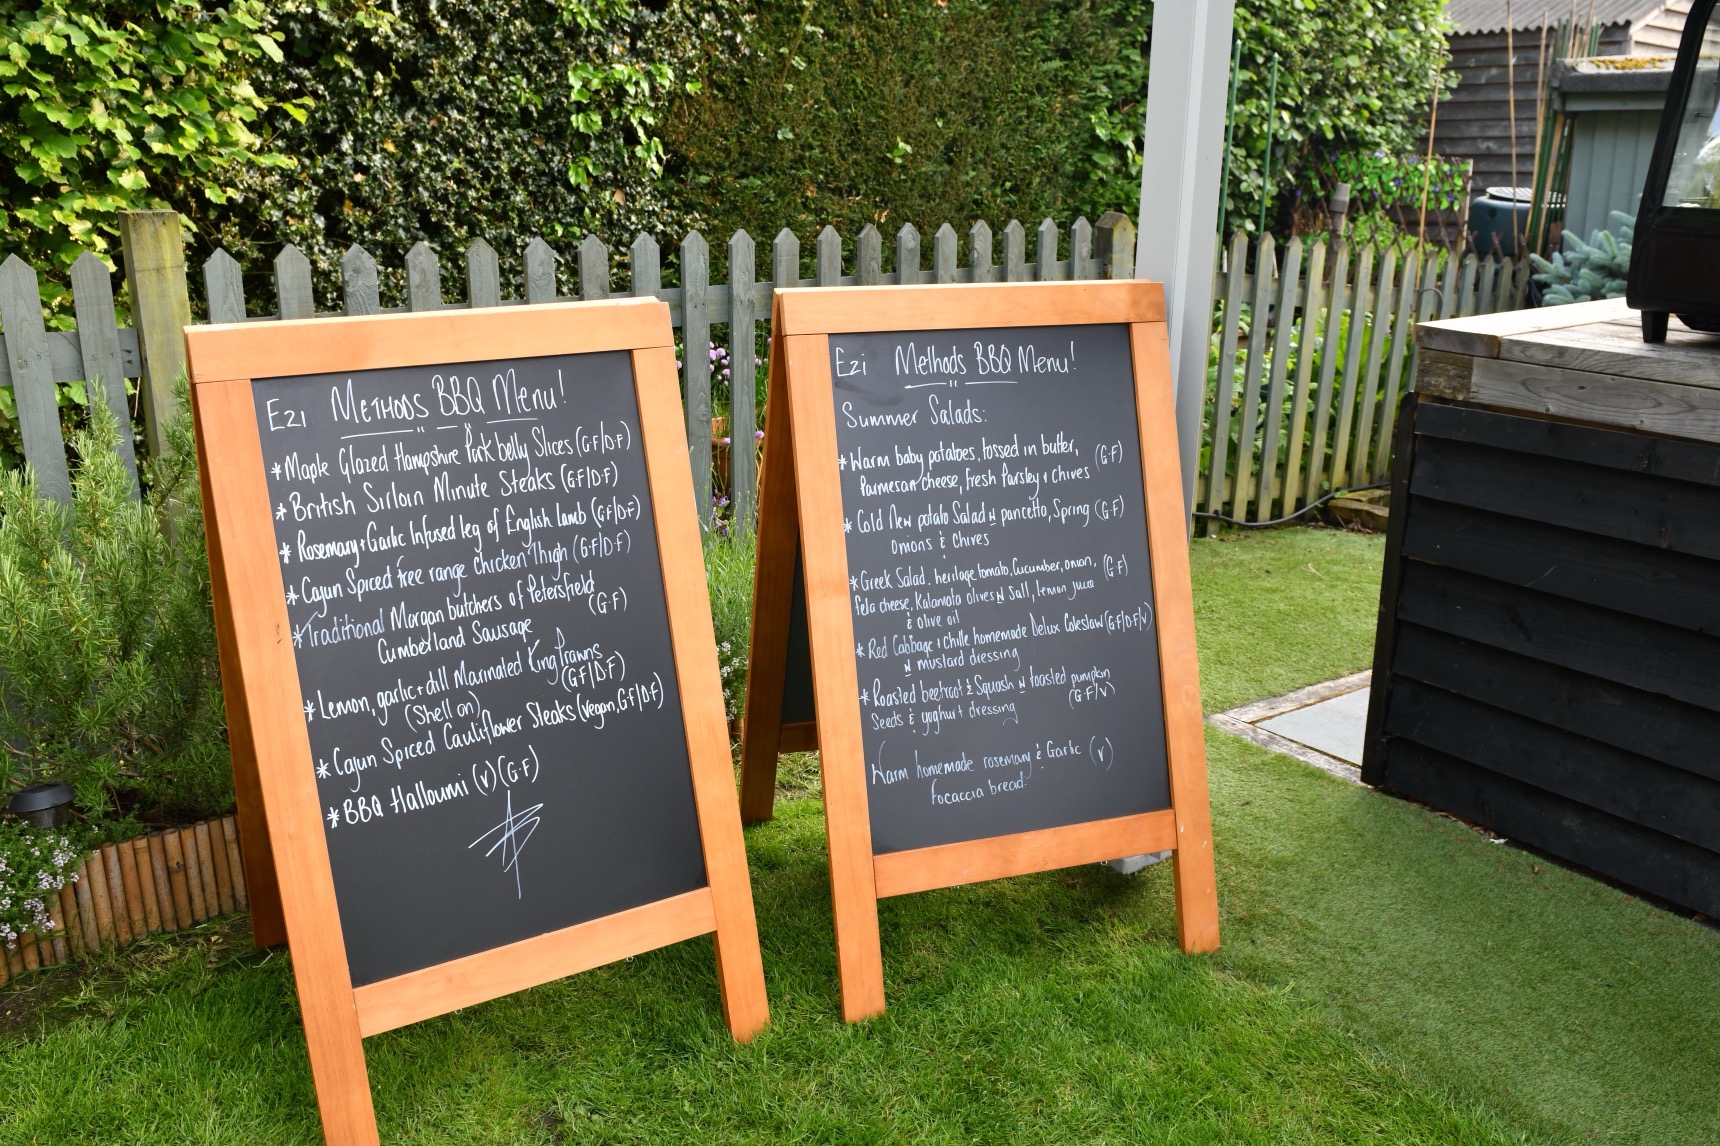 Ezi Methods BBQ Menu!
* Maple Glazed Hampshire Pork belly Slices (G·F/D·F)
* British Sirloin Minute Steaks (G·F/D·F)
* Rosemary + Garlic Infused leg of English lamb (G·F/D·F)
* Cajun Spiced free range chicken Thigh (G·F/D·F)
* Traditional Morgan butchers of Petersfield
Cumberland Sausage (G·F)
* Lemon, garlic + dill Marinated King Prawns
(Shell on) (G·F/D·F)
* Cajun Spiced Cauliflower Steaks (vegan, G·F/D·F)
* BBQ Halloumi (v) (G·F)
Ezi Methods BBQ Menu!
Summer Salads:
* Warm baby potatoes, tossed in butter, (G·F)
Parmesan cheese, fresh Parsley + chives
* Cold New potato Salad w pancetta, Spring (G·F)
Onions & chives
* Greek Salad. heritage tomato, Cucumber, onion, (G·F)
feta cheese, Kalamata olives w Salt, lemon juice
& olive oil
* Red Cabbage + chille homemade Delux Coleslaw (G·F/D·F/v)
w mustard dressing
* Roasted beetroot & Squash w toasted pumpkin
Seeds & yoghurt dressing (G·F/v)
Warm homemade rosemary & Garlic (v)
focaccia bread.